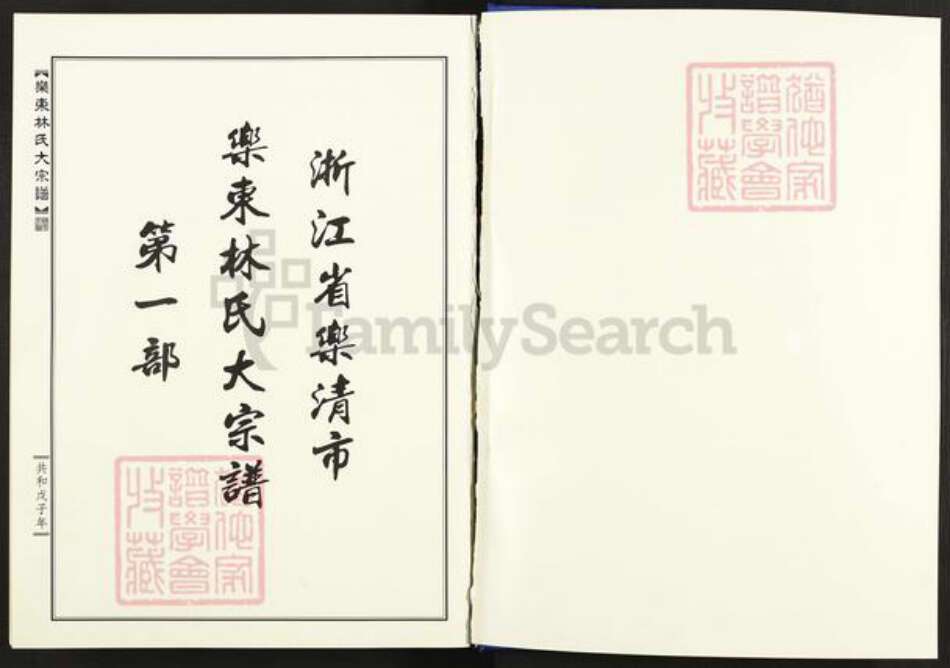 浙江省樂清市
樂東林氏大宗譜
第一部
【樂東林氏大宗譜】
共和戊子年
猶他家
譜學會
收藏
猶他家
譜學會
收藏
FamilySearch